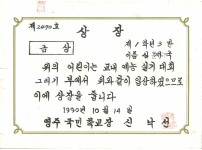 제2070호
상장
금상
제1학년3반
위의 어린이는 교내 예능 실기 대회
그리기 부에서 위와같이 입상하였으므로
이에 상장을 줍니다
1990년 10월 14일
영주국민학교장 신낙선